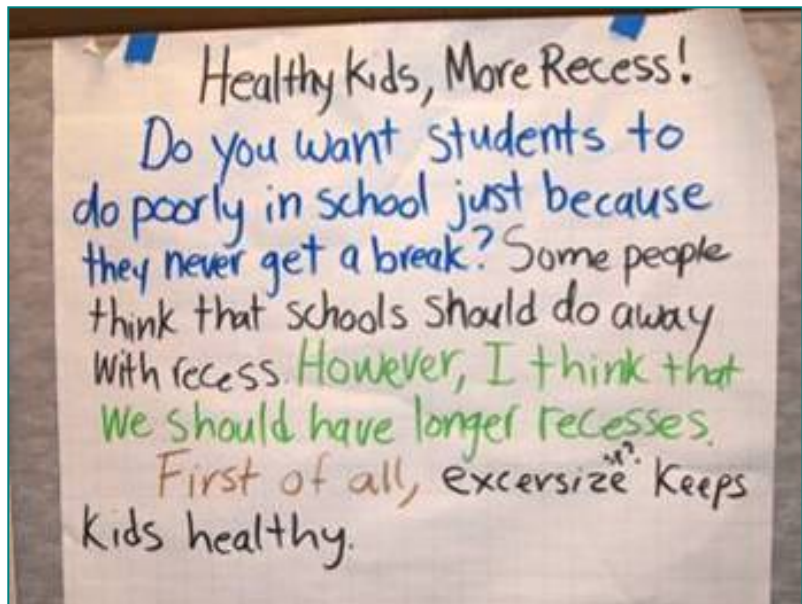 Healthy Kids, More Recess!
Do you want students to
do poorly in school just because
they never get a break? Some people
think that schools should do away
with recess. However, I think that
we should have longer recesses.
First of all, excersize keeps
kids healthy.